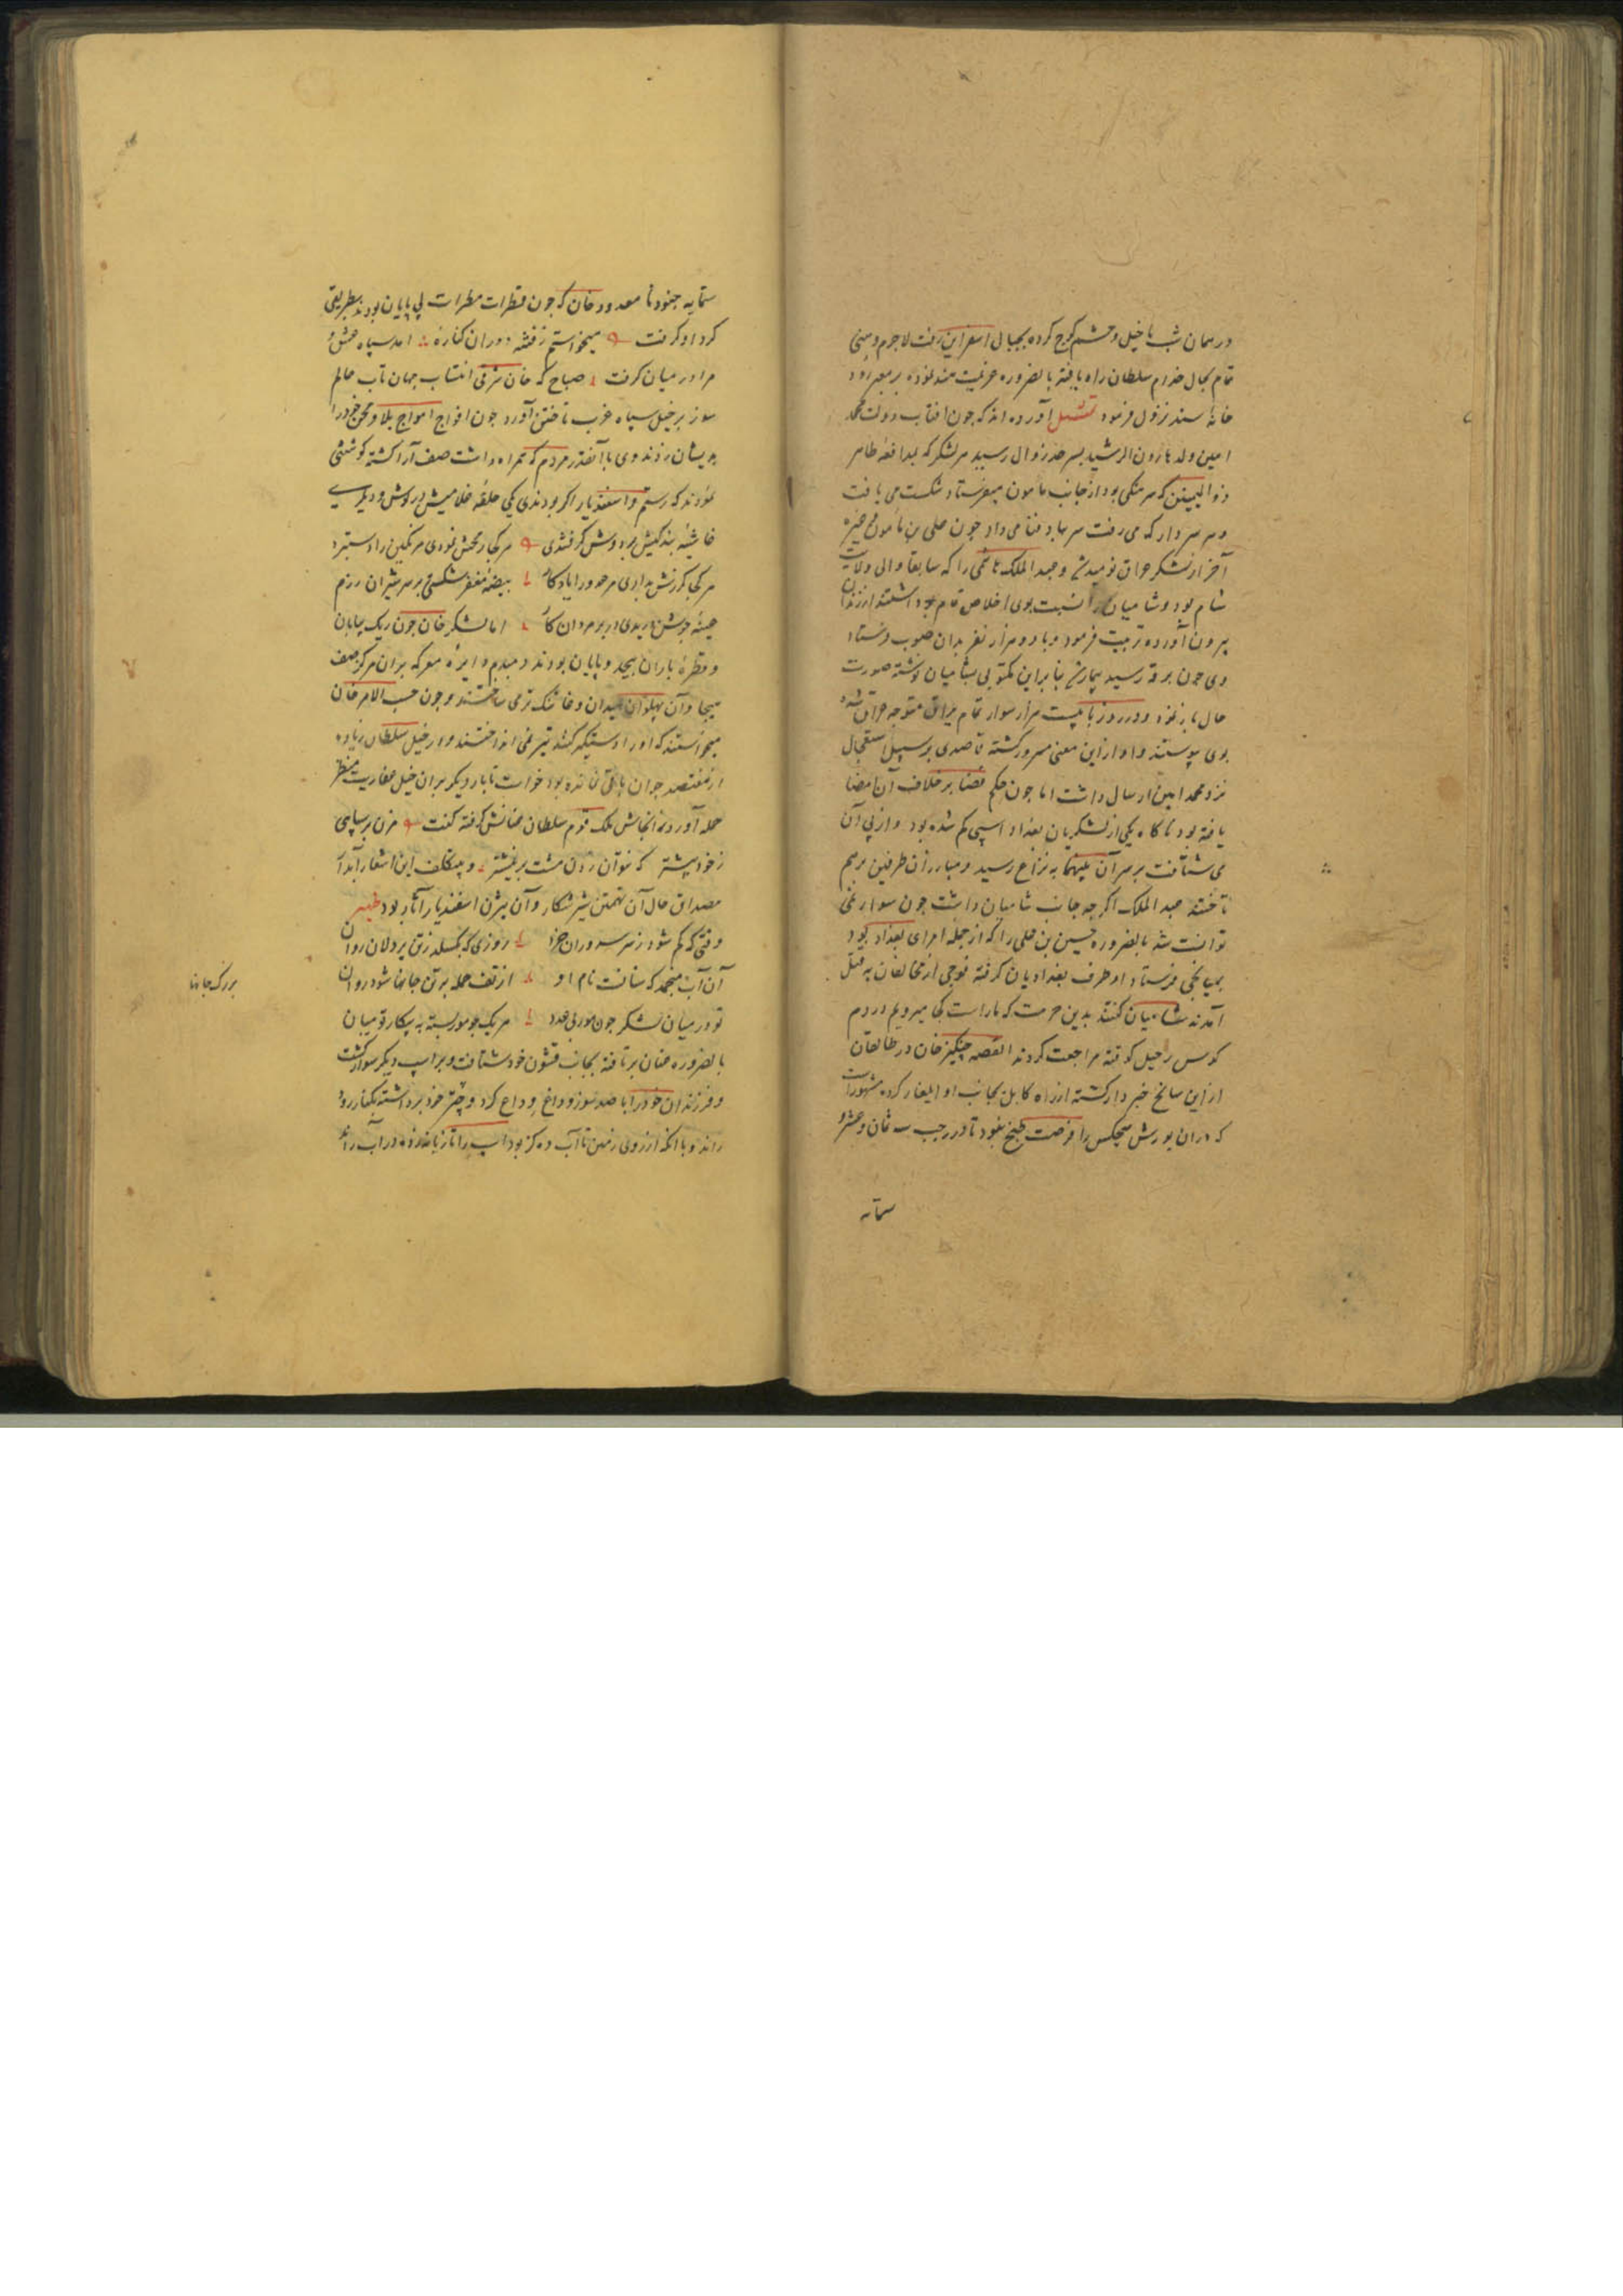 در همان شب با خیل و حشم کوچ کرده بجبال اسفراین رفت لاجرم وهنی
تمام بحال خدام سلطان راه یافته بالضروره عزیمت هند نموده بر معبر رود
خانهٔ سند نزول فرمود تمثیل آورده اند که چون افتاب دولت محمد
امین ولد هارون الرشید بسر حد زوال رسید هر لشکر که بمدافعه طاهر
ذوالیمینین که سرهنگی بود از جانب مامون میفرستاد شکست می یافت
و هر سردار که می رفت سر بباد فنا می داد چون علی بن
آخر از لشکر عراق نومید شد و عبد الملک هاشمی را که سابقا والی ولایت
شام بود و شامیان را نسبت بوی اخلاص تمام بود داشتند از زندان
بیرون آورده تربیت فرمود و با دو هزار نفر بدان صوب فرستاد
وی چون برقه رسید بیمار شد بنابراین مکتوبی بشامیان نوشته صورت
حال باز نمود و در روز با بیست هزار سوار تمام یراق متوجه عراق شده
بوی پیوستند و او ازین معنی مسرور گشته قاصدی بر سبیل استعجال
نزد محمد امین ارسال داشت اما چون حکم قضا بر خلاف آن امضا
یافته بود ناکاه یکی از لشکریان بغداد اسپی گم شده بود و از پی آن
می شتافت بر سر آن بینهما به نزاع رسید و مبارزان طرفین بر هم
تاختند عبد الملک اگرچه جانب شامیان داشت چون سوار نمی
توانست شد بالضروره حسین بن علی را که از جمله امرای بغداد بود
بمیانجی فرستاد او طرف بغدادیان گرفته فوجی از مخالفان به قتل
آمدند شامیان گفتند بدین حرمت که ماراست کجا میرویم در دم
کوس رحیل کوفته مراجعت کردند القصه چنگیز خان در طالقان
ازین سانح خبردار گشته از راه کابل بجانب او ایلغار کرده مشهور است
که در ان یورش هیچکس را فرصت طبخ نبود تا در رجب سنه ثمان و عشر و
ستمایه
ستمایه جنود نا معدود خان که چون قطرات مطرات بی پایان بودند بطریقی
گرد او گرفت میخواستم ز فتنه دوران کناره امد سپاه
مرا در میان گرفت صباح که خان شرقی انتساب جهان تاب عالم
سوز بر خیل سپاه غرب تاختن آورد چون افواج امواج بلا و محن خود را
بدیشان زدند وی با آنقدر مردم که همراه داشت صف آرا گشته کوششی
نمودند که رستم و اسفندیار اگر بودندی یکی حلقه غلامیش در گوش و دیگری
غاشیهٔ بندگیش بر دوش گرفتندی هر کجا رخش نمودی دستبرد
هر کجا گرزش بدادی بیضهٔ مغفر شکستی بر سر شیران رزم
جوشن دریدی در بر مردان اما لشکر خان چون ریک بیابان
و قطرهٔ باران بیحد و پایان بودند دمبدم دایرهٔ معرکه بران مرکز صف
هیجا و آن پهلوان میدان وغا تنگ تر می ساختند و چون حسب الامر خان
میخواستند که او را دستگیر کنند تیر نمی انداختند و از خیل سلطان زیاده
از هفتصد جوان باقی نمانده بود خواست تا بار دیگر بران خیل عفاریت منظر
حمله آورد ملک سلطان عنانش گرفته گفت مزن بر سپاهی
ز خود بیشتر که نتوان زدن مشت بر نیشتر و بیتکلف این اشعار آبدار
مصداق حال آن تهمتن شیر شکار و آن بیژن اسفندیار آثار بود ظهیر
وقتی که گم شود ز سر سروران روزی که بگسلد پردلان روان
آن آب منجمد که سنانست نام او از تف حمله بر تن جانها شود روان
تو در میان لشکر چون مور بی عدد هر یک چو مور بسته به پیکار تو میان
بزرگ جانها
بالضروره عنان برتافته بجانب قشون خود شتافت و بر اسپ دیگر سوار گشت
و فرزندان خود را با صد سوز و داغ وداع کرد و چتر خود برداشته بکنار رود
راند و با انکه از روی زمین تا آب ده گز بود اسپ را تازیانه زده در آب راند